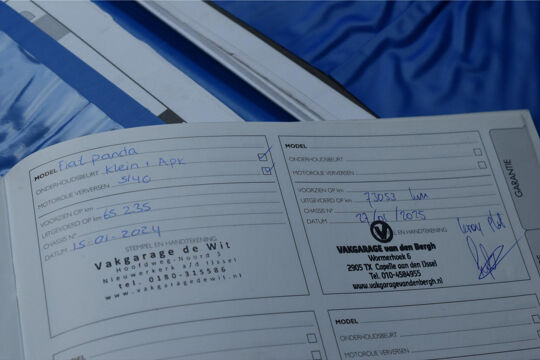 MODEL Fiat panda
ONDERHOUDSBEURT Klein + Apk
MOTOROLIE VERVERSEN 5/40
VOORZIEN OP km
UITGEVOERD OP km 65.235
CHASSIS N°
DATUM 15-01-2024
STEMPEL EN HANDTEKENING
Vakgarage de Wit
Hoofdweg-Noord 5
Nieuwerkerk a/d IJssel
tel. 0180-315586
www.vakgaragedewit.nl
MODEL
ONDERHOUDSBEURT
MOTOROLIE VERVERSEN
VOORZIEN OP km
UITGEVOERD OP km 73053 km
CHASSIS N°
DATUM 2025
VAKGARAGE van den Bergh
Wormerhoek 6
2905 TX Capelle aan den IJssel
Tel. 010-4584955
www.vakgaragevandenbergh.nl
GARANTIE
MODEL
ONDERHOUDSBEURT
MODEL
ONDERHOUDSBEURT
MOTOROLIE VERVERSEN